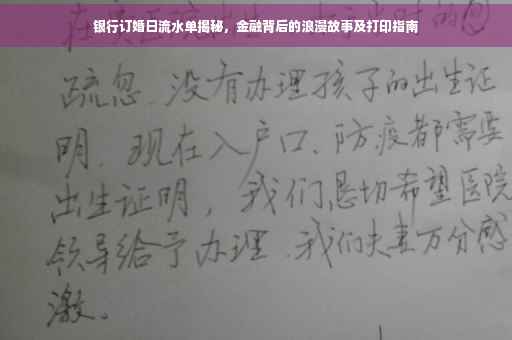 银行订婚日流水单揭秘，金融背后的浪漫故事及打印指南
疏忽.没有办理孩子的出生证
明.现在入户口、防疫都需要
出生证明，我们恳切希望医院
领导给予办理.我们夫妻万分感
激。